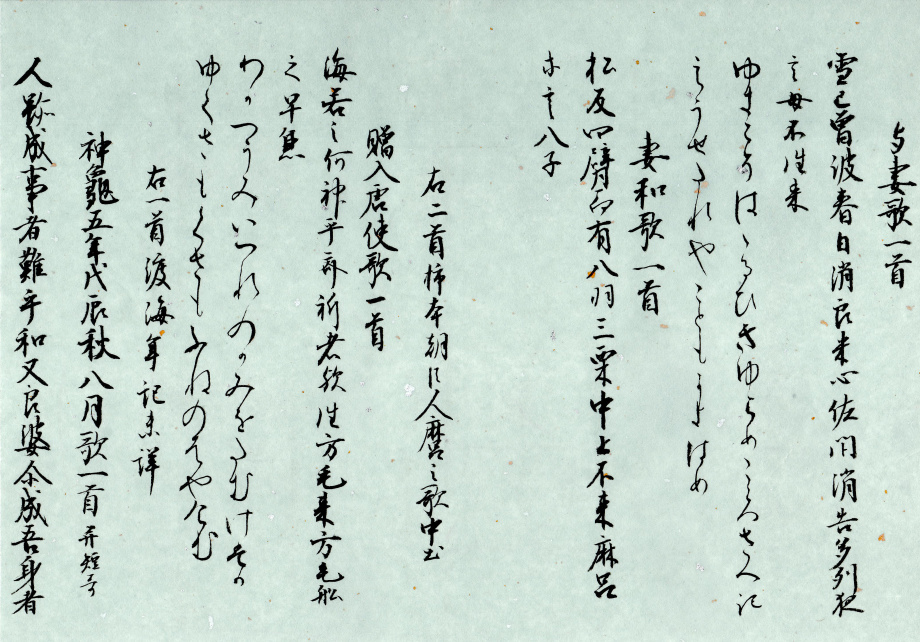 与妻歌一首
雪己曾波春日消良米心佐閇消告多列夜
言母不徃来
ゆきこそはゝるひきゆらめこゝろさへ記
えうせたれやこともかよはぬ
妻和歌一首
松反四臂而有八羽三栗中上不来麻呂
等言八子
右二首柿本朝臣人麿之歌中出
贈入唐使歌一首
海若之何神乎齊祈者歟徃方毛来方毛舩
之早兼
わたつうみいつれのかみをたむけはか
ゆくさもくさもふねのはやけむ
右一首渡海年記未詳
神龜五年戊辰秋八月歌一首并短哥
人跡成事者難乎和久良婆尓成吾身者